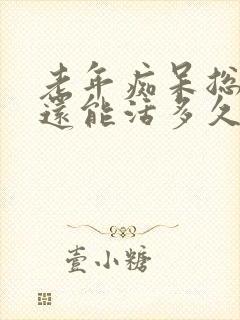 老年痴呆总
還能活多久
壹小糖